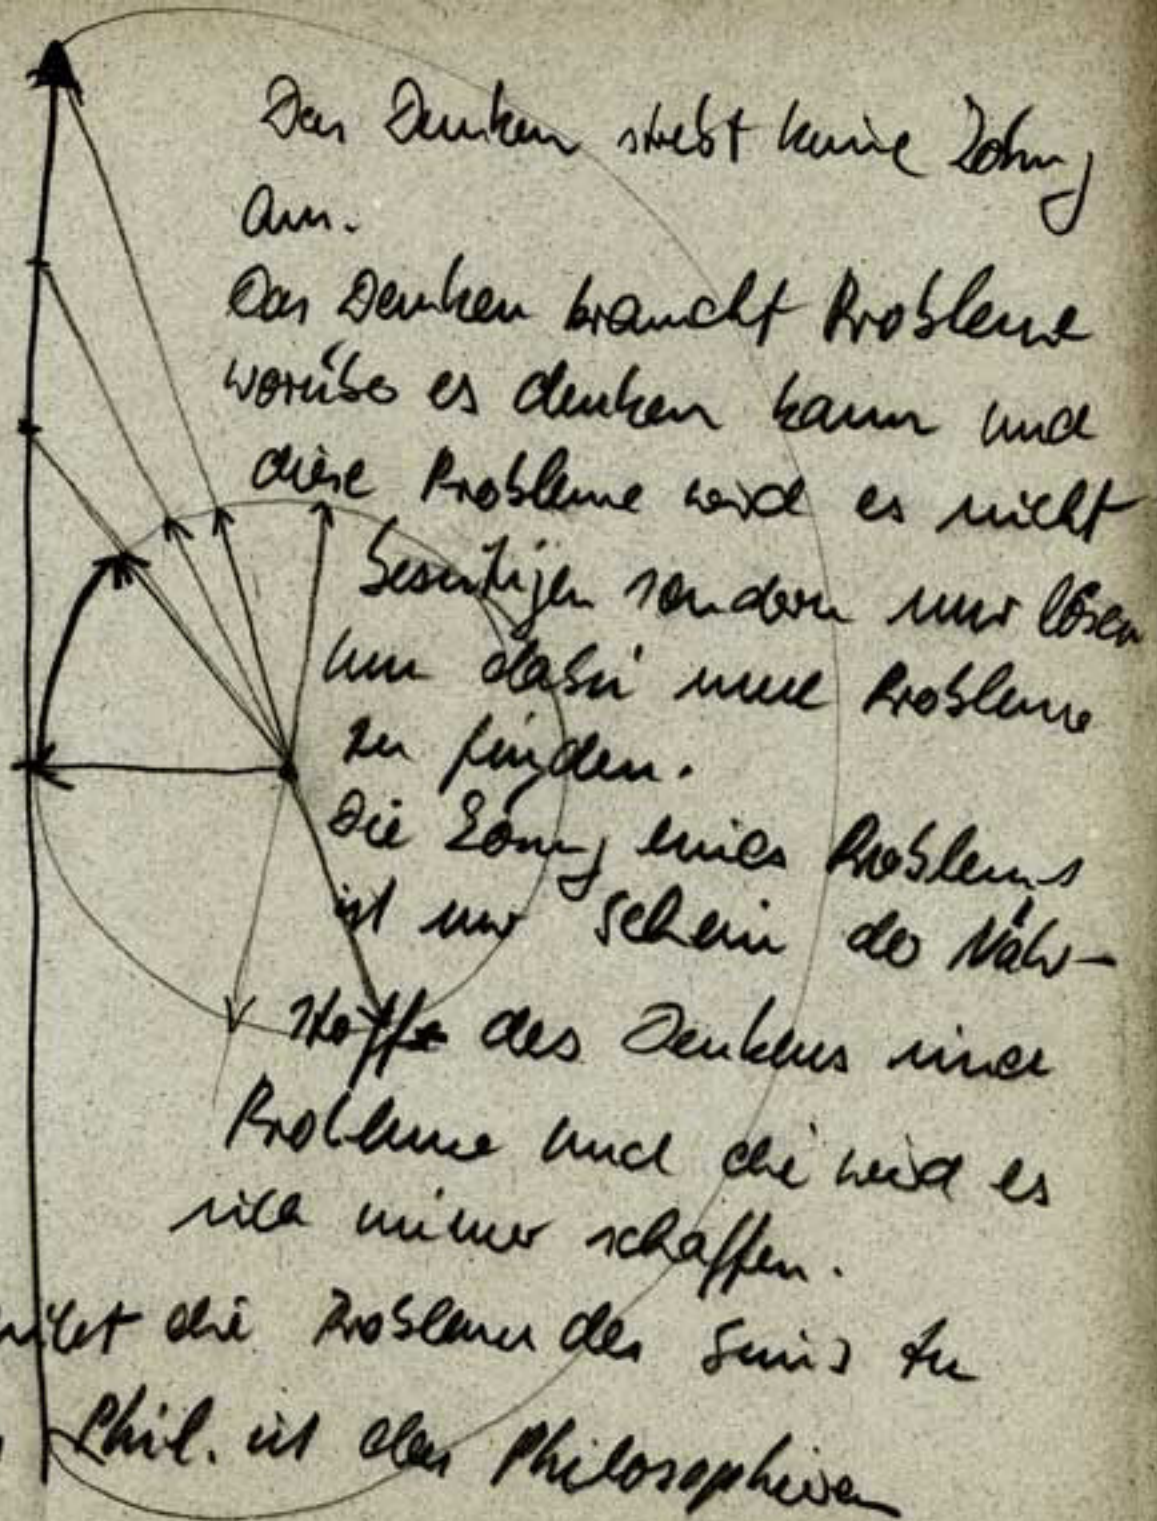 Das Denken strebt keine Lösung
an.
Das Denken braucht Probleme
worüber es denken kann und
diese Probleme wird es nicht
beseitigen sondern nur lösen
um dabei neue Probleme
zu finden.
Die Lösung eines Problems
ist nur Schein der Nähr-
stoff des Denkens sind
Probleme und die wird es
sich immer schaffen.
die Probleme des Seins zu
Phil. ist das Philosophieren